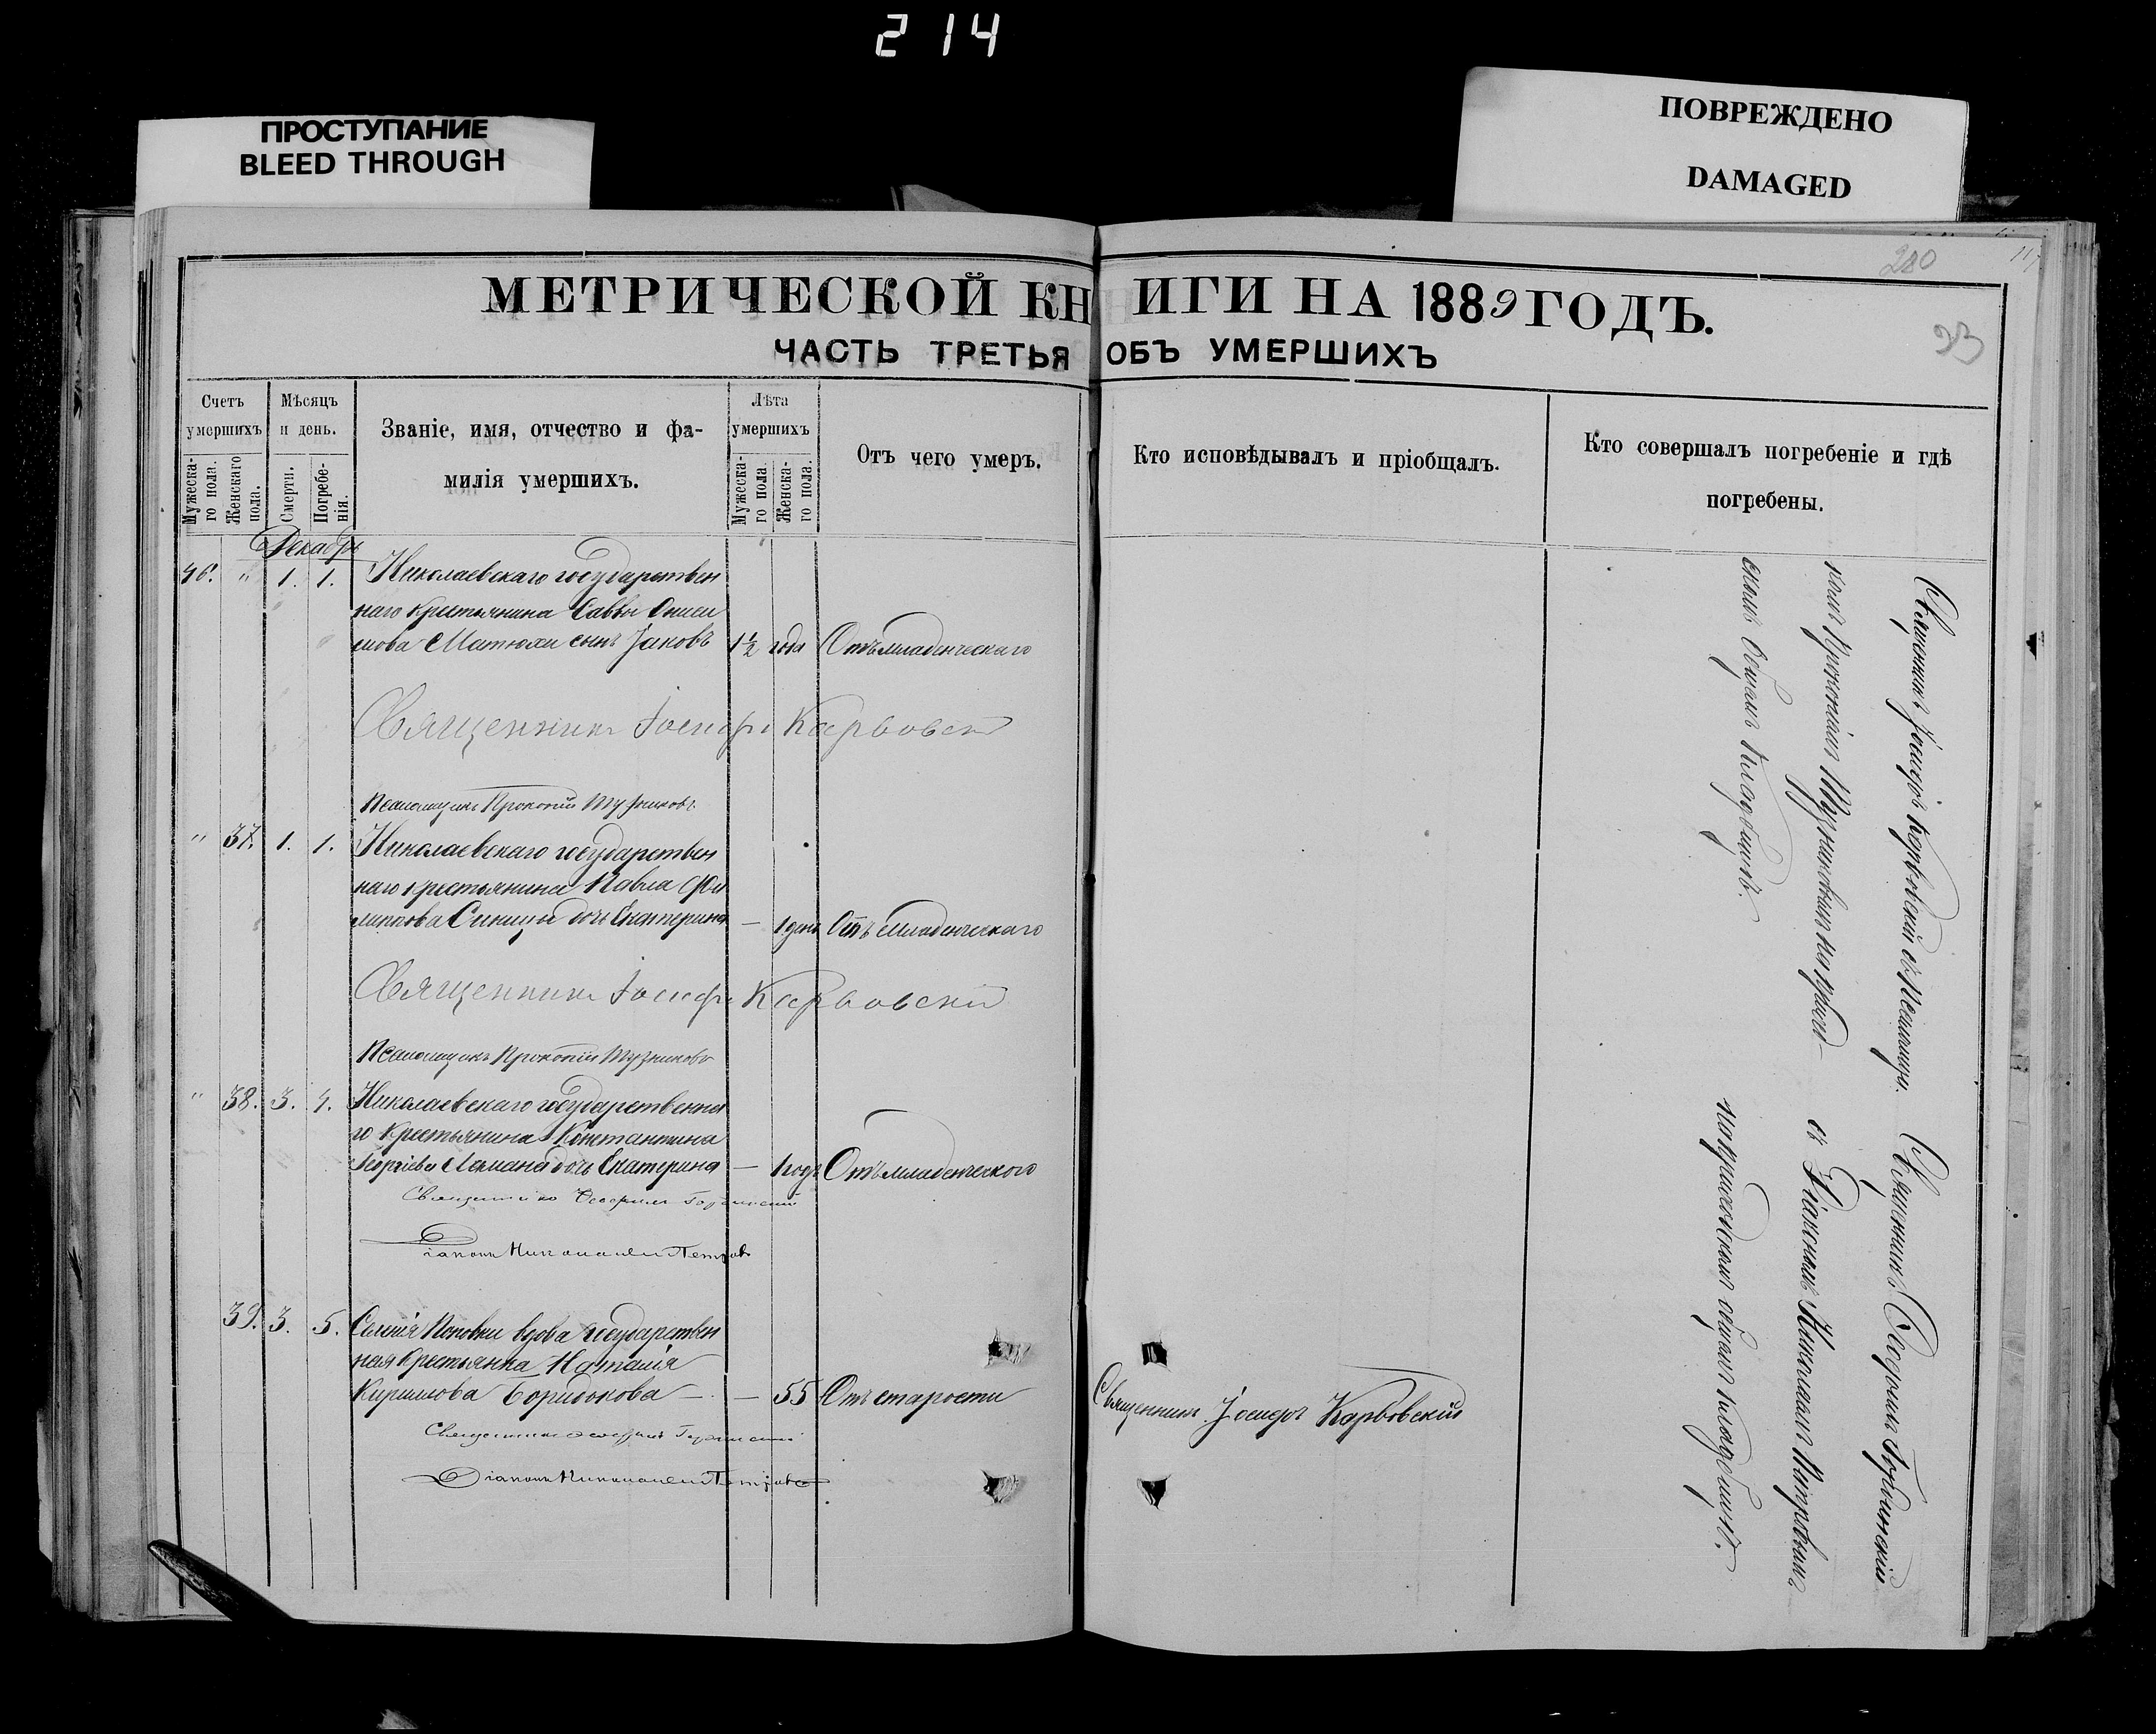 214
ПРОСТУПАНИЕ
BLEED THROUGH
ПОВРЕЖДЕНО
DAMAGED
280
93
МЕТРИЧЕСКОЙ КНИГИ НА 1889 ГОДЪ.
ЧАСТЬ ТРЕТЬЯ ОБЪ УМЕРШИХЪ
Счетъ умершихъ
Мужеска-го пола.
Женскаго пола.
Мѣсяцъ и день.
Смерти.
Погребе-нія.
Званіе, имя, отчество и фа-
милія умершихъ.
Лѣта умершихъ
Мужеска-го пола.
Женска-го пола.
Отъ чего умеръ.
Кто исповѣдывалъ и пріобщалъ.
Кто совершалъ погребеніе и гдѣ
погребены.
Декабрь
46. " 1. 1. Николаевскаго государствен
наго крестьянина Саввы Ониси
мова Матюхи сынъ Іаковъ 1½ года Отъ младенческаго
Священникъ Іосифъ Карвовскій
Псаломщикъ Прокопій Тузниковъ
" 37. 1. 1. Николаевскаго государствен
наго крестьянина Павла Фи
липпова Синицы дочь Екатерина — 1 день Отъ младенческаго
Священникъ Іосифъ Карвовскій
Псаломщикъ Прокопій Тузниковъ
" 38. 3. 4. Николаевскаго государственна
го крестьянина Константина
Георгіева дочь Екатерина — 1 годъ Отъ младенческаго
Священникъ
Діаконъ Николай Петровъ
39. 3. 5. Селенія Поповки вдова государствен
ная крестьянка Наталія
Кирилова — 55 Отъ старости Священникъ Іосифъ Карвовскій
Священникъ
Діаконъ Николай Петровъ
Священникъ Іосифъ Карвовскій съ Псаломщи-
комъ Прокопіемъ Тузниковымъ на приход-
скомъ общемъ кладбищѣ.
Священникъ
съ Діакономъ Николаемъ Петровымъ
на приходскомъ общемъ кладбищѣ.